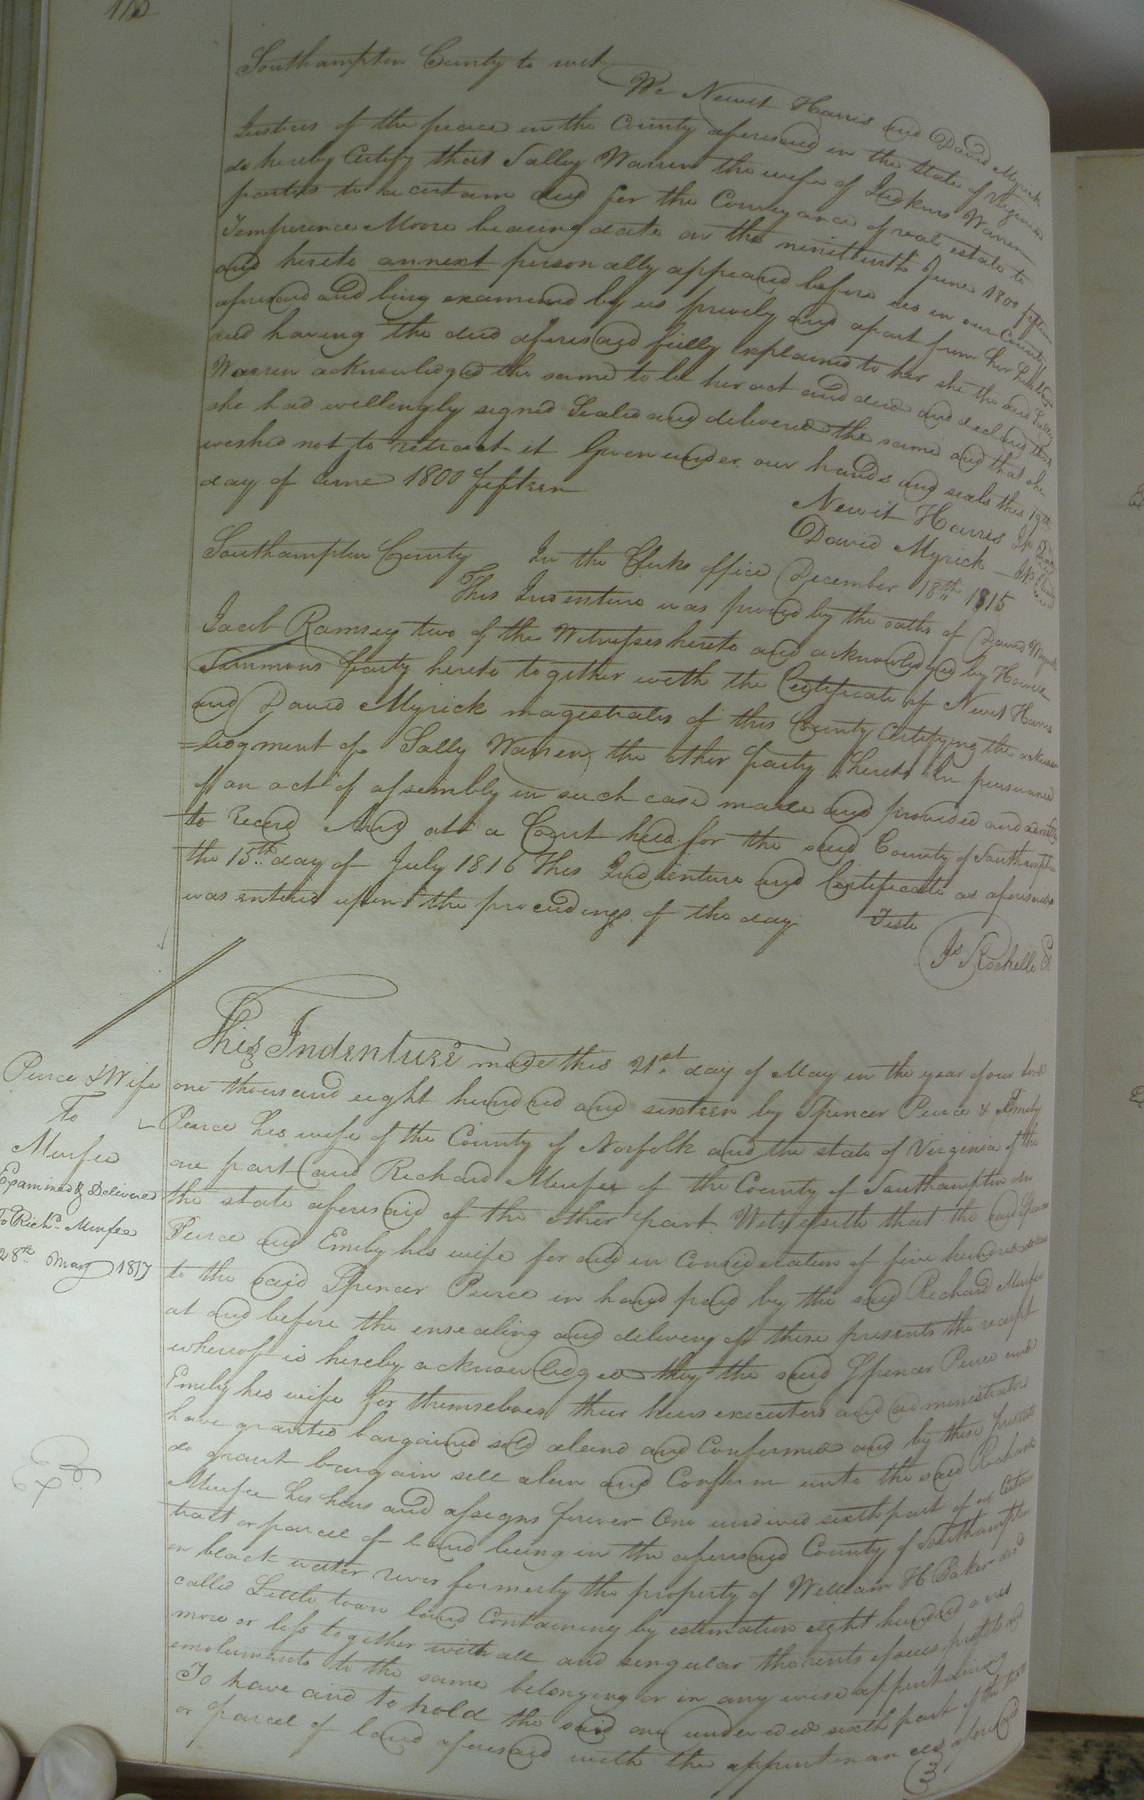 Southampton County to wit
We Newit Harris and David Myrick
Justices of the peace in the County aforesaid in the state of Virginia
do hereby Certify that Salley Warren the wife of Warren
parties to a certain deed for the Conveyance of real estate to
Temperence Moore bearing date on the nineteenth June 1800 fifteen
and hereto annext personally appeared before us in our County
aforesaid and being examined by us privily and apart from her husband
and having the deed aforesaid fully explained to her she the said Sally
Warren acknowledged the same to be her act and deed and declared that
she had willingly signed Sealed and delivered the same and that she
wished not to retract it Given under our hands and seals this 19th
day of June 1800 fifteen
Newit Harris
David Myrick
Southampton County In the Clerks office December 18th 1815
This Indenture was proved by the oaths of David
Jacob Ramsey two of the Witnesses hereto and acknowledged by
Simmons party hereto together with the Certificate of Newit Harris
and David Myrick magistrates of this County Certifying the acknow
=ledgment of Sally Warren the other party hereto In pursuance
of an act of assembly in such case made and provided and
to Record And at a Court held for the said County of Southampton
the 15th day of July 1816 This Indenture and Certificate as aforesaid
was entered upon the proceedings of the day Teste
Js Rochelle Cl
Pierce & Wife
To
Murfee
Examined & Delivered
To Richd Murfee
28th May 1817
This Indenture made this 21st day of May in the year of our Lord
one thousand eight hundred and sixteen by Spencer Pierce & Emily
Pearce his wife of the County of Norfolk and the state of Virginia of the
one part and Richard Murfee of the County of Southampton in
the state aforesaid of the other part Witnesseth that the said Spencer
Pierce and Emily his wife for and in Consideration of five hundred
to the said Spencer Pierce in hand paid by the said Richard Murfee
at and before the ensealing and delivery of these presents the receipt
whereof is hereby acknowledged they the said Spencer Pierce and
Emily his wife for themselves their heirs executors and administrators
have granted bargained sold aliend and Confirmed and by these presents
do grant bargain sell alien and Confirm unto the said Richard
Murfee his heirs and assigns forever One undivid sixth part of a Certain
tract or parcel of land lieing in the aforesaid County of Southampton
on black water river formerly the property of William H Baker and
called Little town land Containing by estimation eight hundred acres
more or less together with all and singular the rents issues profits and
emoluments to the same belonging or in any wise appertaining
To have and to hold the said one undivided sixth part of the tract
or parcel of land aforesaid with the appurtenances aforesaid